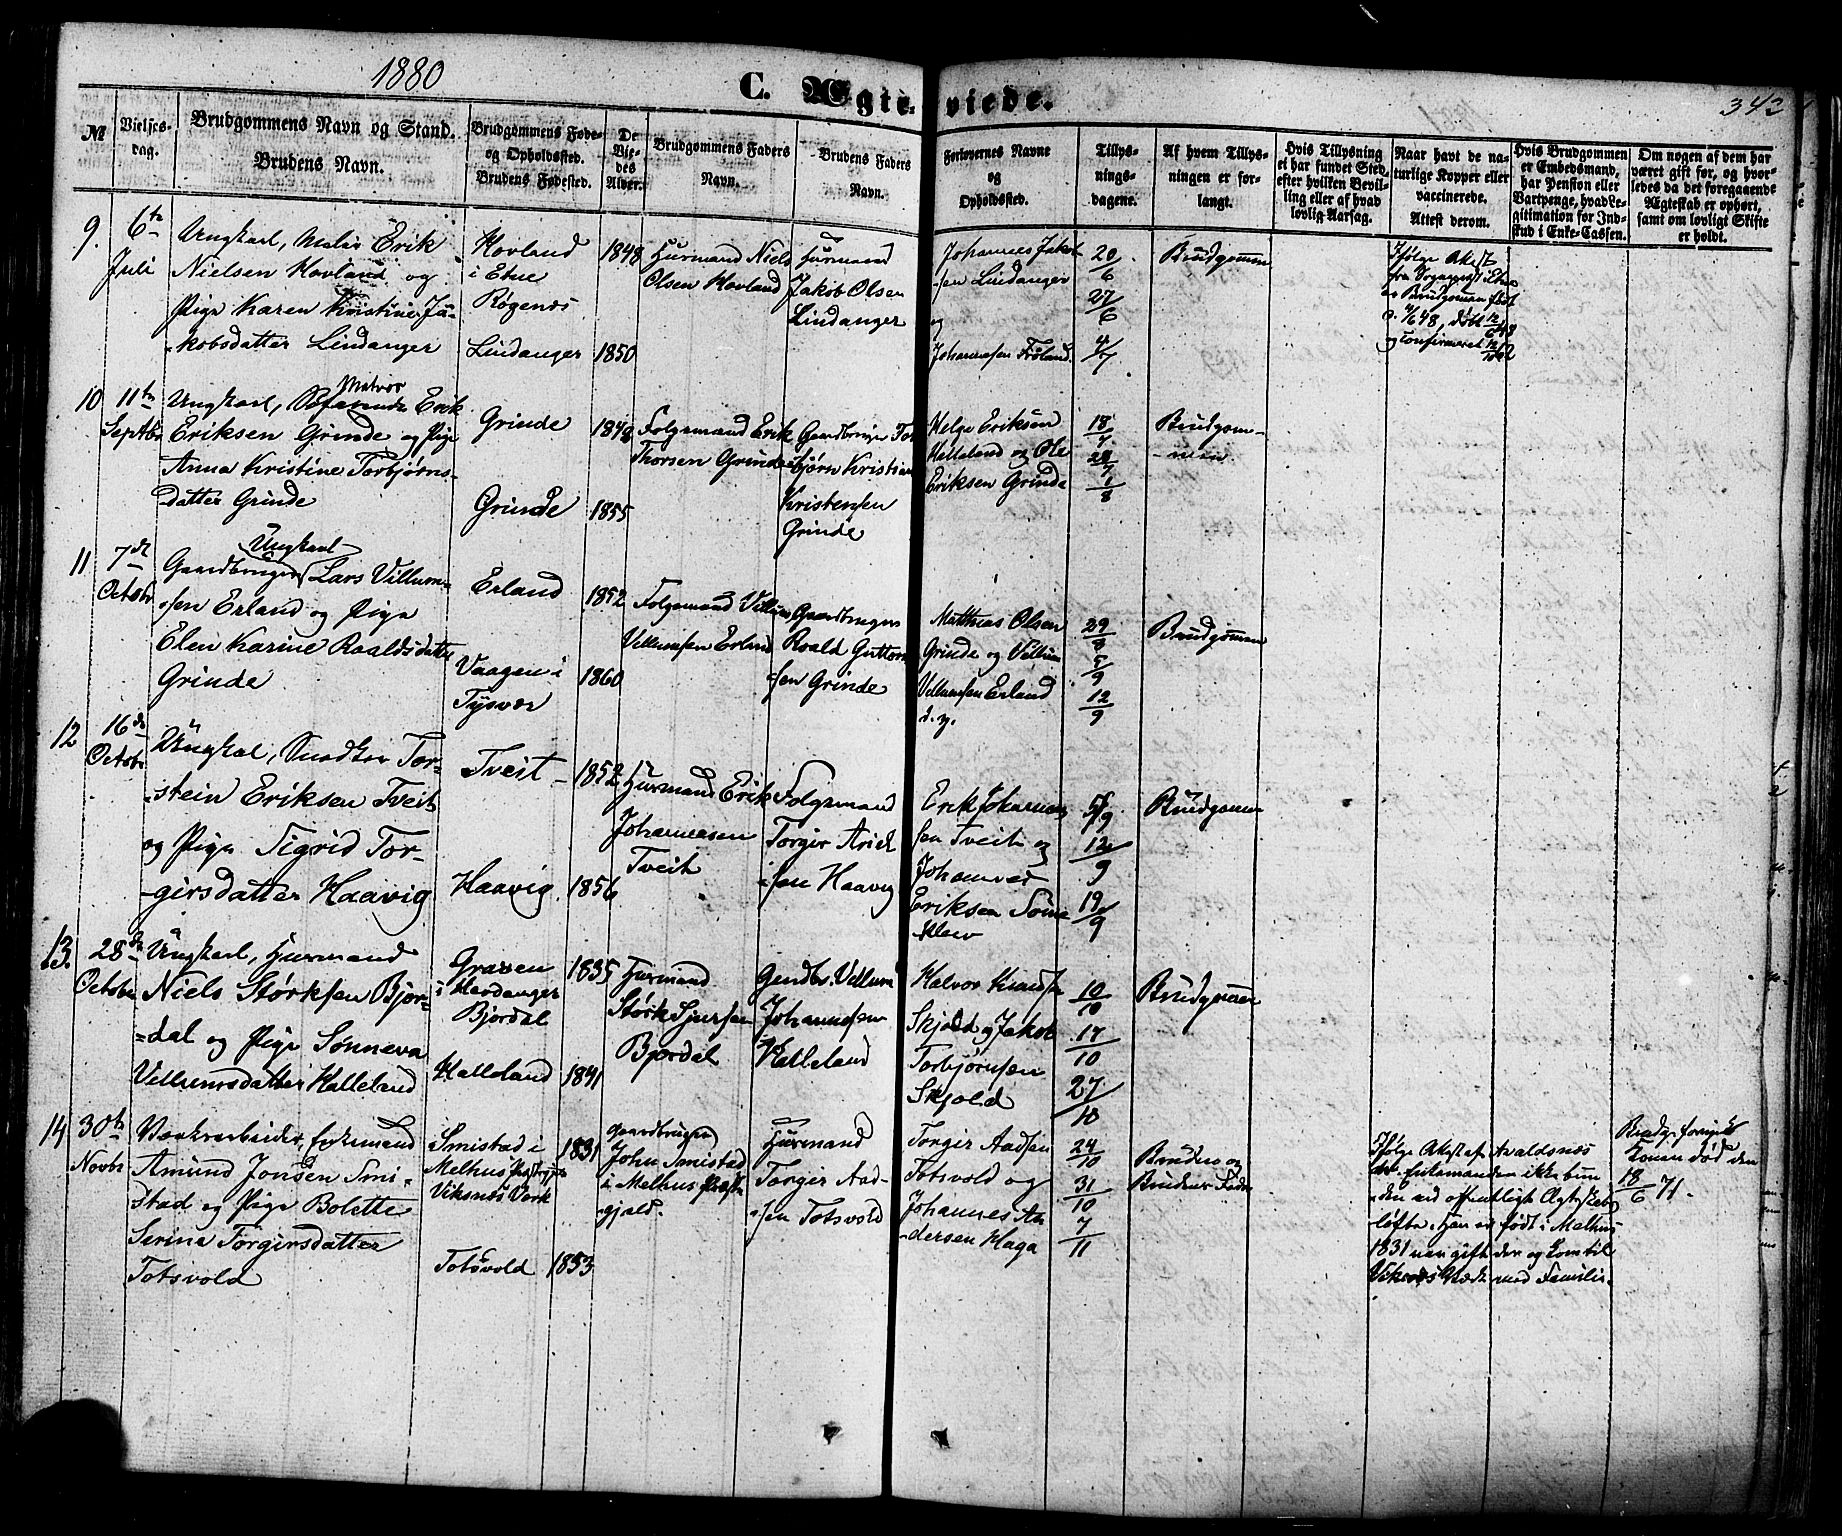 1880
C. Ægteviede.
343
№
Vielsesdag.
Brudgommens Navn og Stand.
Brudens Navn.
Brudgommens Føde-
og Opholdssted.
Brudens Fødested.
De
Vie-
des
Alder.
Brudgommens Faders
Navn.
Brudens Faders
Navn.
Forlovernes Navne
og
Opholdssted.
Tillys-
nings-
dagene.
Af hvem Tillys-
ningen er for-
langt.
Hvis Tillysning
ei har fundet Sted,
efter hvilken Bevil-
ling eller af hvad
lovlig Aarsag.
Naar havt de na-
turlige Kopper eller
vaccinerede.
Attest derom.
Hvis Brudgommen
er Embedsmand,
har Pension eller
Vartpenge, hvad Le-
gitimation for Ind-
skud i Enke-Cassen.
Om nogen af dem har
været gift før, og hvor-
ledes da det foregaaende
Ægteskab er ophørt,
samt om lovligt Skifte
er holdt.
9.
6te
Juli
Ungkarl, Maler Erik
Nielsen Hovland og
Pige Karen Kristine Ja-
kobsdatter Lindanger
Hovland
i Etne
Røgenæs
Lindanger
1848
1850
Huusmand Niels
Olsen Hovland
Huusmand
Jakob Olsen
Lindanger
Johannes Jakob-
sen Lindanger
og
Johannesen Frøland
20/6
27/6
4/7
Brudgommen
Ifølge Attest
fra Sognepræst Etne
er Brudgommen født
og confirmeret
10
11te
Septbr
Ungkarl, Matros Erik
Eriksen Grinde og Pige
Anna Kristine Torbjørns-
datter Grinde
Grinde
Grinde
1848
1855
Folgemand Erik
Thorsen Grinde
Gaardbruger Tor-
bjørn Kristian
Kristensen
Grinde
Helge Eriksen
Helleland og Ole
Eriksen Grinde
18/7
1/8
Brudgom-
men
11
7de
Octobr
Ungkarl
Gaardbruger Lars Villum-
sen Erland og Pige
Elen Karine Roaldsdatter
Grinde
Erland
Vaagen i
Tysvær
1852
1860
Folgemand Villum
Villumsen Erland
Gaardbruger
Roald Guttorm-
sen Grinde
Matthias Olsen
Grinde og Villum
Villumsen Erland
d. y.
29/8
5/9
12/9
Brudgommen
12
16de
Octobr
Ungkal, Snedker Tor-
stein Eriksen Tveit
og Pige Sigrid Tor-
girsdatter Haavig
Tveit
Haavig
1852
1856
Huusmand Erik
Johannesen
Tveit
Folgemand
Torgir Arict-
sen Haavig
Erik Johannes-
sen Tveit og
Johannes
Eriksen Sømme
Kleiv
5/9
12/9
19/9
Brudgommen
13.
28de
Octobr
Ungkarl, Huusmand
Niels Størksen Bjor-
dal og Pige Sønneva
Villumsdatter Halleland
Graven
i Hardanger
Bjordal
Halleland
1835
1841
Huusmand
Størk Sjursen
Bjordal
Gaardbr. Villum
Johannesen
Halleland
Halvor Knudsen
Skjold og Jakob
Torbjørnsen
Skjold
10/10
17/10
27/10
Brudgommen
14
30te
Novbr
Værksarbeider, Enkemand
Amund Jonsen Smi-
stad og Pige Bolette
Serine Torgirsdatter
Totsvold
Smistad i
Melhus
Viksnæs Værk
Totsvold
1831
1853
Gaardbruger
John Smistad
i Melhus Præste-
gjæld.
Huusmand
Torgir Aad-
sen Totsvold
Torgir Aadsen
Totsvold og
Johannes An-
dersen Haga
24/10
31/10
7/11
Bruden og
Brudens Fader
Ifølge Attest af Avaldsnæs
er Enkemanden ikke bun-
den ved offentligt Ægteskabs
løfte. Han er født i Melhus
1831 og kom til
Viksnæs Værk med Familie.
Brudg. forrige
Konen død den
18/6 71.